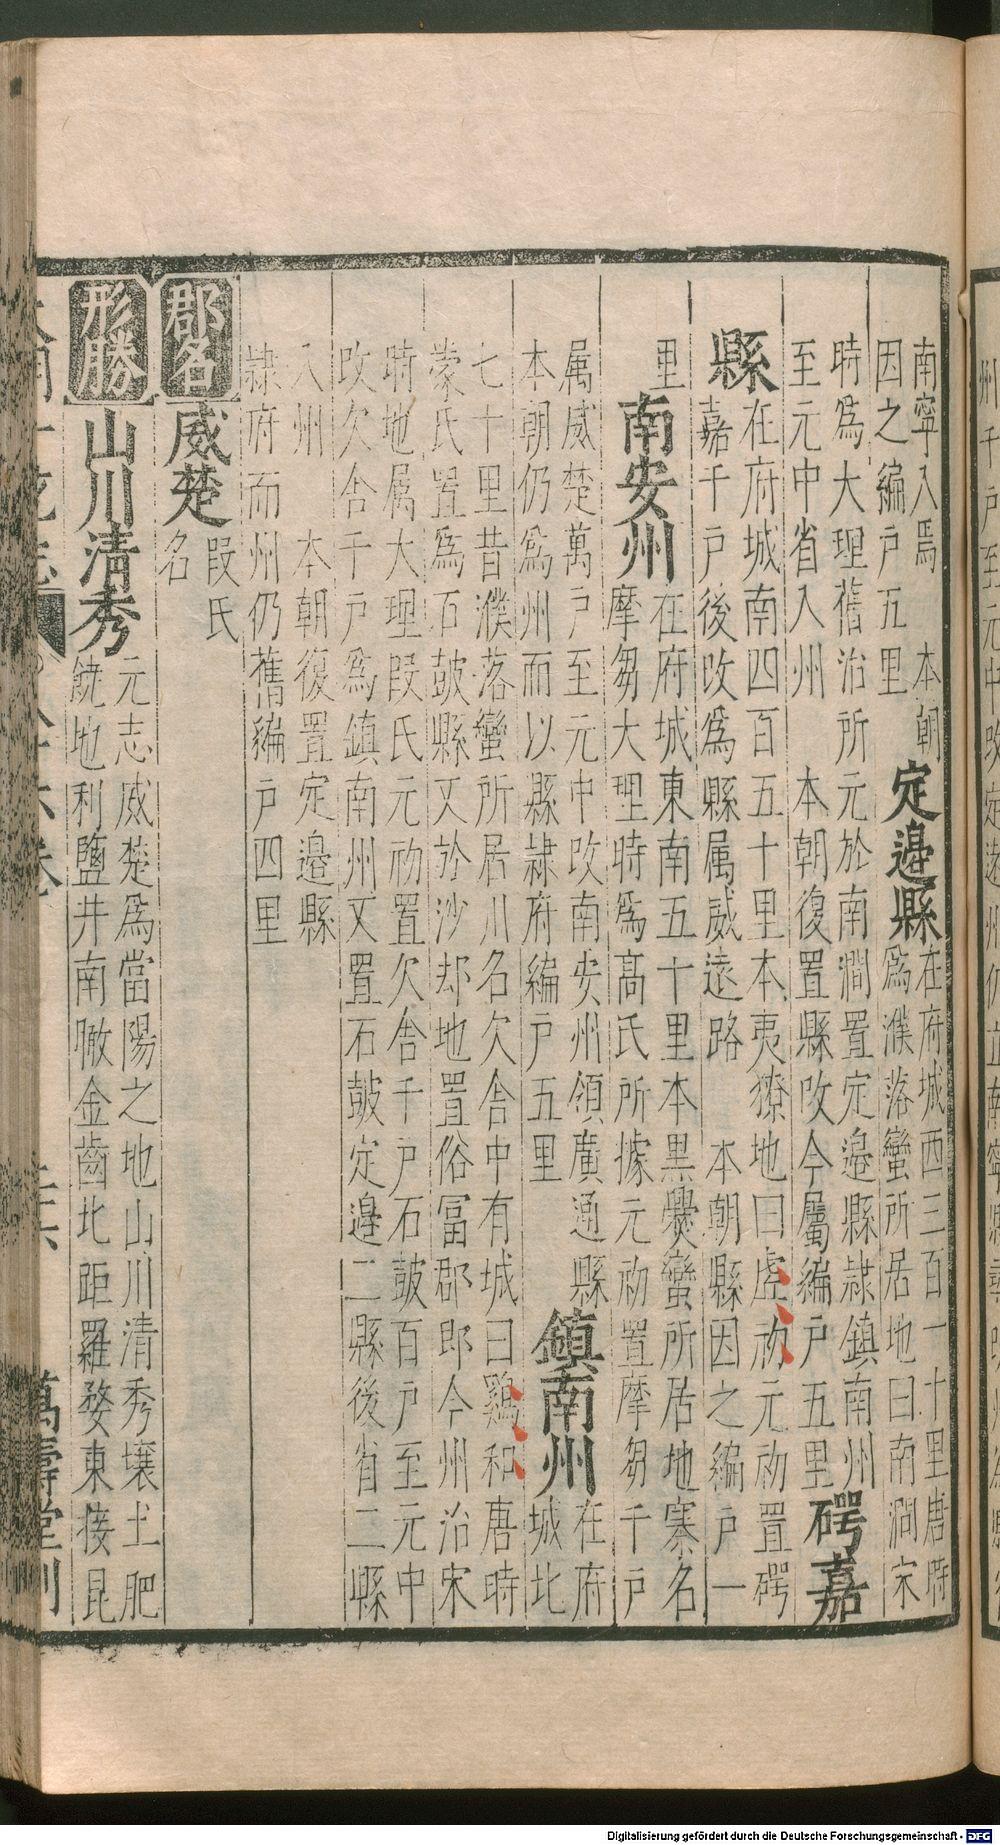 南寧入焉　本朝
因之編户五里
定邉縣
在府城西三百一十里唐時
爲濮落蠻所居地曰南澗宋
時爲大理舊治所元於南澗置定邉縣隷鎮南州
至元中省入州　本朝復置縣改今屬編户五里
碍嘉
縣
在府城南四百五十里本夷獠地曰虚初元初置碍
嘉千户後改爲縣属威遠路　本朝縣因之編户一
里
南安州
在府城東南五十里本黒爨蠻所居地寨名
摩芻大理時爲髙氏所據元初置摩芻千户
属威楚萬户至元中改南安州領廣通縣
本朝仍爲州而以縣隷府編户五里
鎮南州
在府
城北
七十里昔濮落蠻所居川名欠舍中有城曰鷄和唐時
蒙氏置爲石皷縣又於沙却地置俗冨郡即今州治宋
時地属大理段氏元初置欠舍千户石皷百户至元中
改欠舍千户爲鎮南州又置石皷定邉二縣後省二縣
入州　本朝復置定邉縣
隷府而州仍舊編户四里
郡名
威楚
段氏
名
形勝
山川清秀
元志威楚爲當陽之地山川清秀壤土肥
饒地利鹽井南瞰金齒北距羅婺東接昆
萬壽堂刊
Digitalisierung gefördert durch die Deutsche Forschungsgemeinschaft - DFG